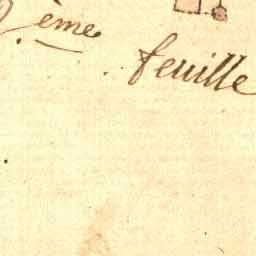 ème
feuille